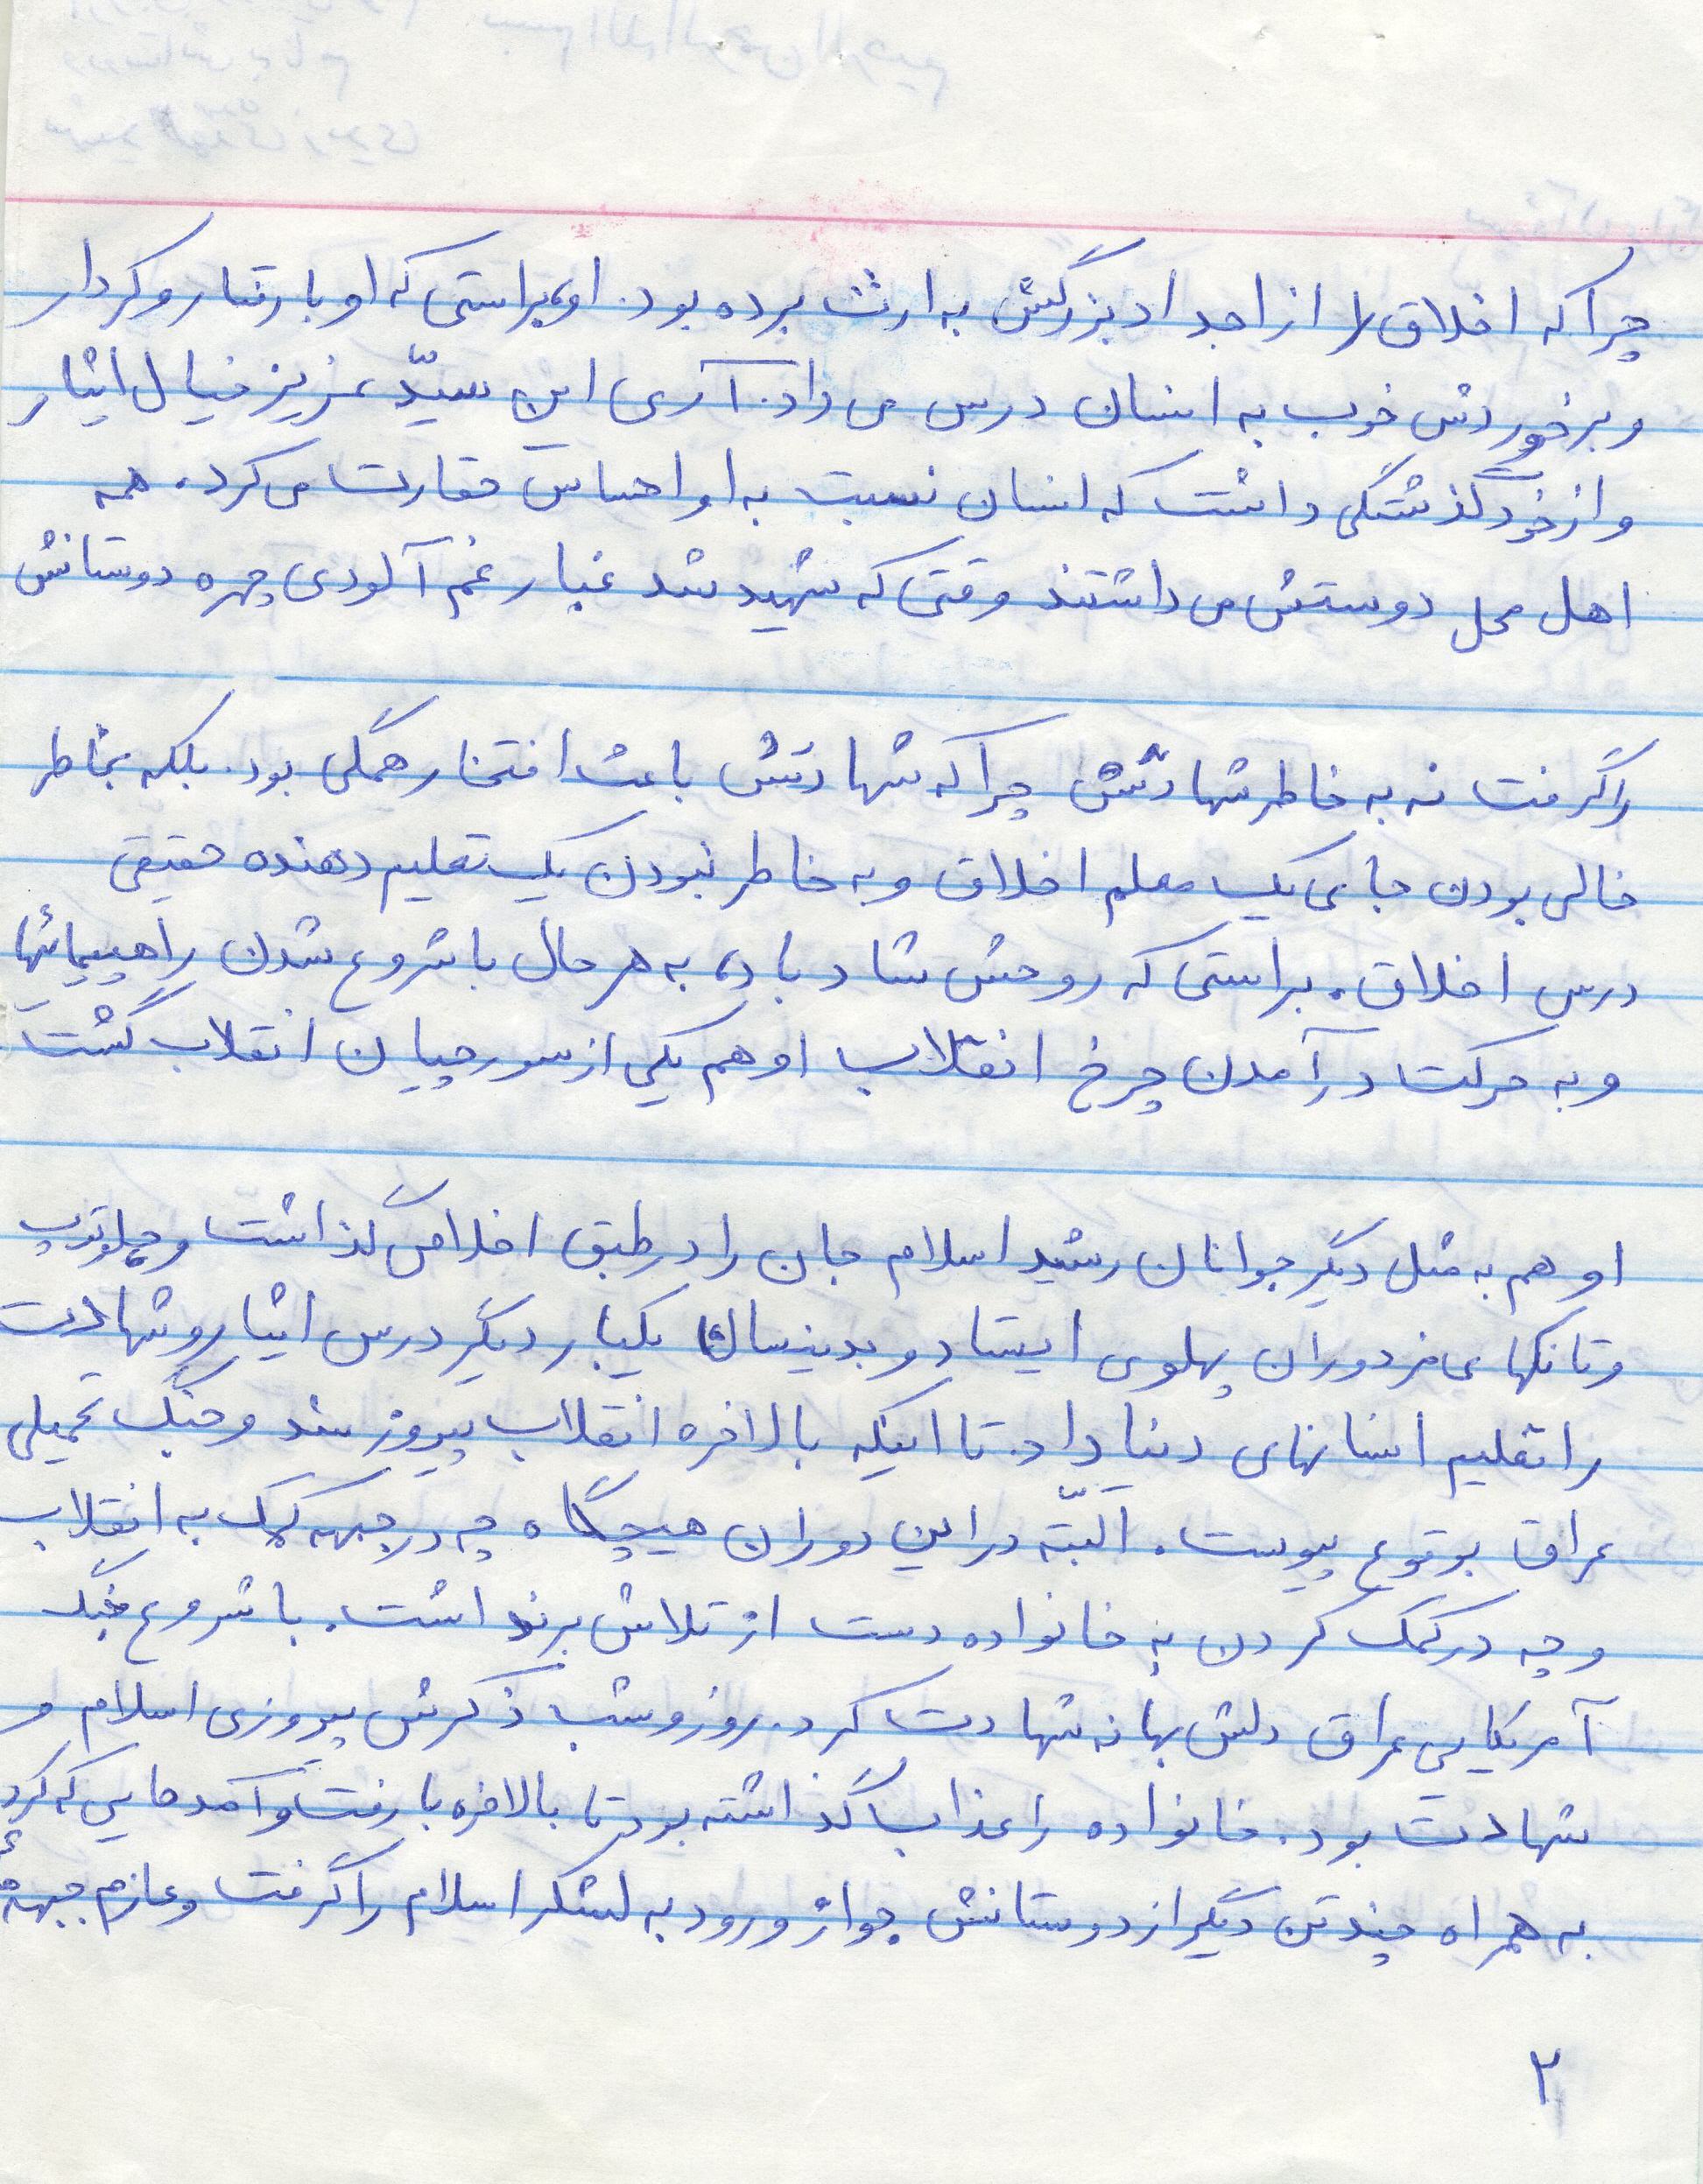 چرا که اخلاق را از اجداد بزرگش به ارث برده بود. او، براستی که او با رفتار و کردار
و برخوردش خوب به انسان درس می داد. آری این سیّد عزیز خیال ایثار
و از خود گذشتگی داشت که انسان نسبت به او احساس حقارت می کرد. همه
اهل محل دوستش می داشتند وقتی که شهید شد غبار غم آلودی چهره دوستانش
را گرفت نه به خاطر شهادتش چرا که شهادتش باعث افتخار همگی بود. بلکه بخاطر
خالی بودن جای یک معلم اخلاق و به خاطر نبودن یک تعلیم دهنده حقیقی
درس اخلاق. براستی که روحش شاد باد، به هر حال با شروع شدن راهپیمائیها
و به حرکت در آمدن چرخ انقلاب او هم یکی از سورچیان انقلاب گشت
او هم به مثل دیگر جوانان رشید اسلام جان را در طبق اخلاص گذاشت و جلو توپ
و تانکهای مزدوران پهلوی ایستاد و بدینسان یکبار دیگر درس ایثار و شهادت
را تعلیم انسانهای دنیا داد. تا اینکه بالاخره انقلاب پیروز شد و جنگ تحمیلی
عراق بوقوع پیوست. البتّه در این دوران هیچگاه چه در جبهه کمک به انقلاب
و چه در کمک کردن به خانواده دست از تلاش برنداشت. با شروع جنگ
آمریکایی عراق دلش بهانه شهادت کرد. روز و شب ذکرش پیروزی اسلام و
شهادت بود. خانواده را عذاب گذاشته بود تا بالاخره با رفت و آمدهایی که کرد
به همراه چند تن دیگر از دوستانش جواز ورود به لشکر اسلام را گرفت و عازم جبههٔ
۲